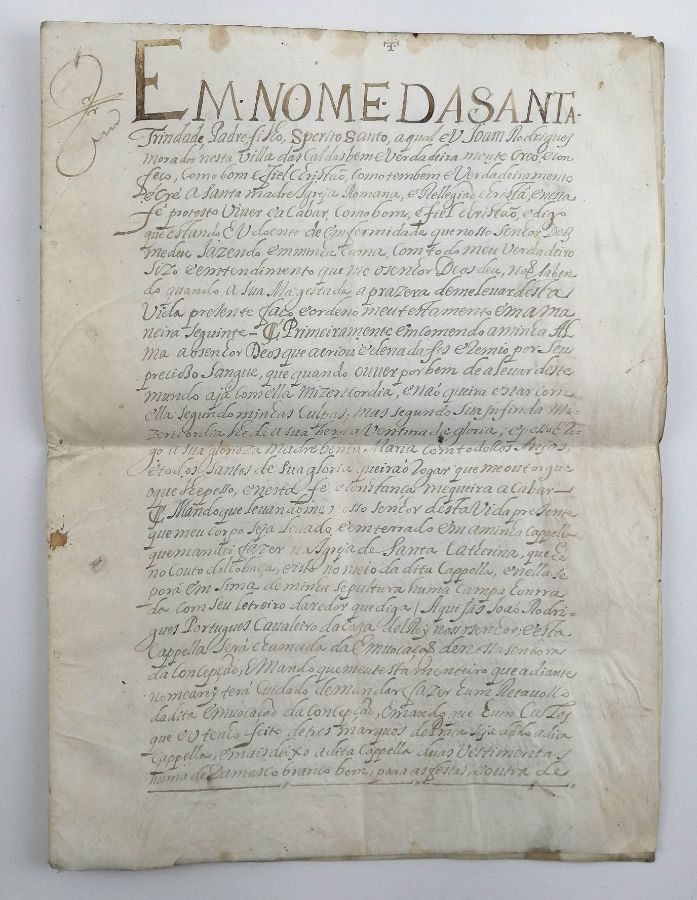 EM·NOME·DA SANTA·
Trindade, Padre, filho, Sperito Santo, a qual eU Joam Rodrigues
morador nesta Villa das Caldas bem e Verdadeiramente Creo, e con
feço, como bom e fiel christão, como tembem e Verdadeiramente
e Cré a Santa madre Igreja Romana, e Relegião christã, e nesta
fé protesto Viver e a Cabar Como bom, e fiel christão, e digo
que estando eU doente de emfermidade que nosso Senhor Deos
me deu jazendo em minha Cama, Com todo meu Verdadeiro
Sizo e emtendimento que me o senhor Deos deu, não saben
do quando a Sua Magestade aprazera de me levar desta
Vida presente faço, e ordeno meu testamento em a ma
neira seguinte Primeiramente emComendo a minha Al
ma a o senhor Deos que a criou e de nada fes e Remio por Seu
precioso Sangue, que quando ouver por bem de a levar deste
mundo aja Com ella Mizericordia, e não queira estar Com
ella segundo minhas Culpas, mas segundo Sua Infinda Mi
zericordia lhe dé a sua bema Ventura de gloria, e peso e Ro
go a sua glorioza Madre benta Maria Com todollos Anjos,
e todos Santos de Sua gloria queirão Rogar que me outorgue
o que lhe pesso, e nesta fé, e Constança me queira a Cabar
Mando que levandome nosso senhor desta Vida presente
que meu Corpo seja levado e emterrado em a minha Cappella
que mandei fazer na Igreja de Santa Catherina, que he
no Couto dalcobaça, e isto no meio da dita Cappella, e nella se
pora em Sima de minha sepultura huma Campa honrra
da Com seu letreiro darredor que diga / Aqui jás João Rodri
gues Portugues Cavaleiro da Caza del Rey nosso senhor, e esta
Cappella será chamada da emvocação de nossa senhora
da Concepção, e Mando que meu testamenteiro que a diante
nomearey terá Cuidado de mandar fazer hum Retavollo
da dita emvocação da Concepção, e mando que hum Calles
que eU tenho feito de tres marquos de Prata seja dado a dita
Cappella, e mais deixo a dita Cappella duas Vestimentas
huma de Damasco branco bom, para as festas, e outra de